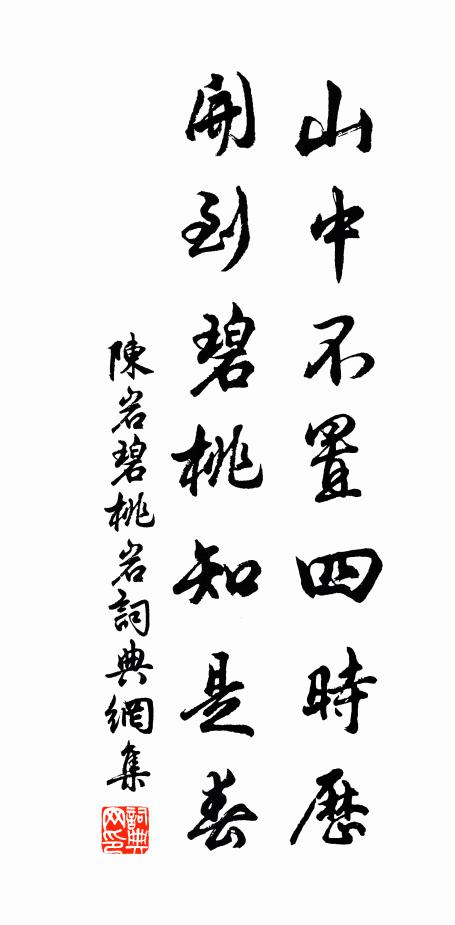 山中不置四時歷
開到碧桃知是春
陳岩碧桃岩詞典網集
詞典网印